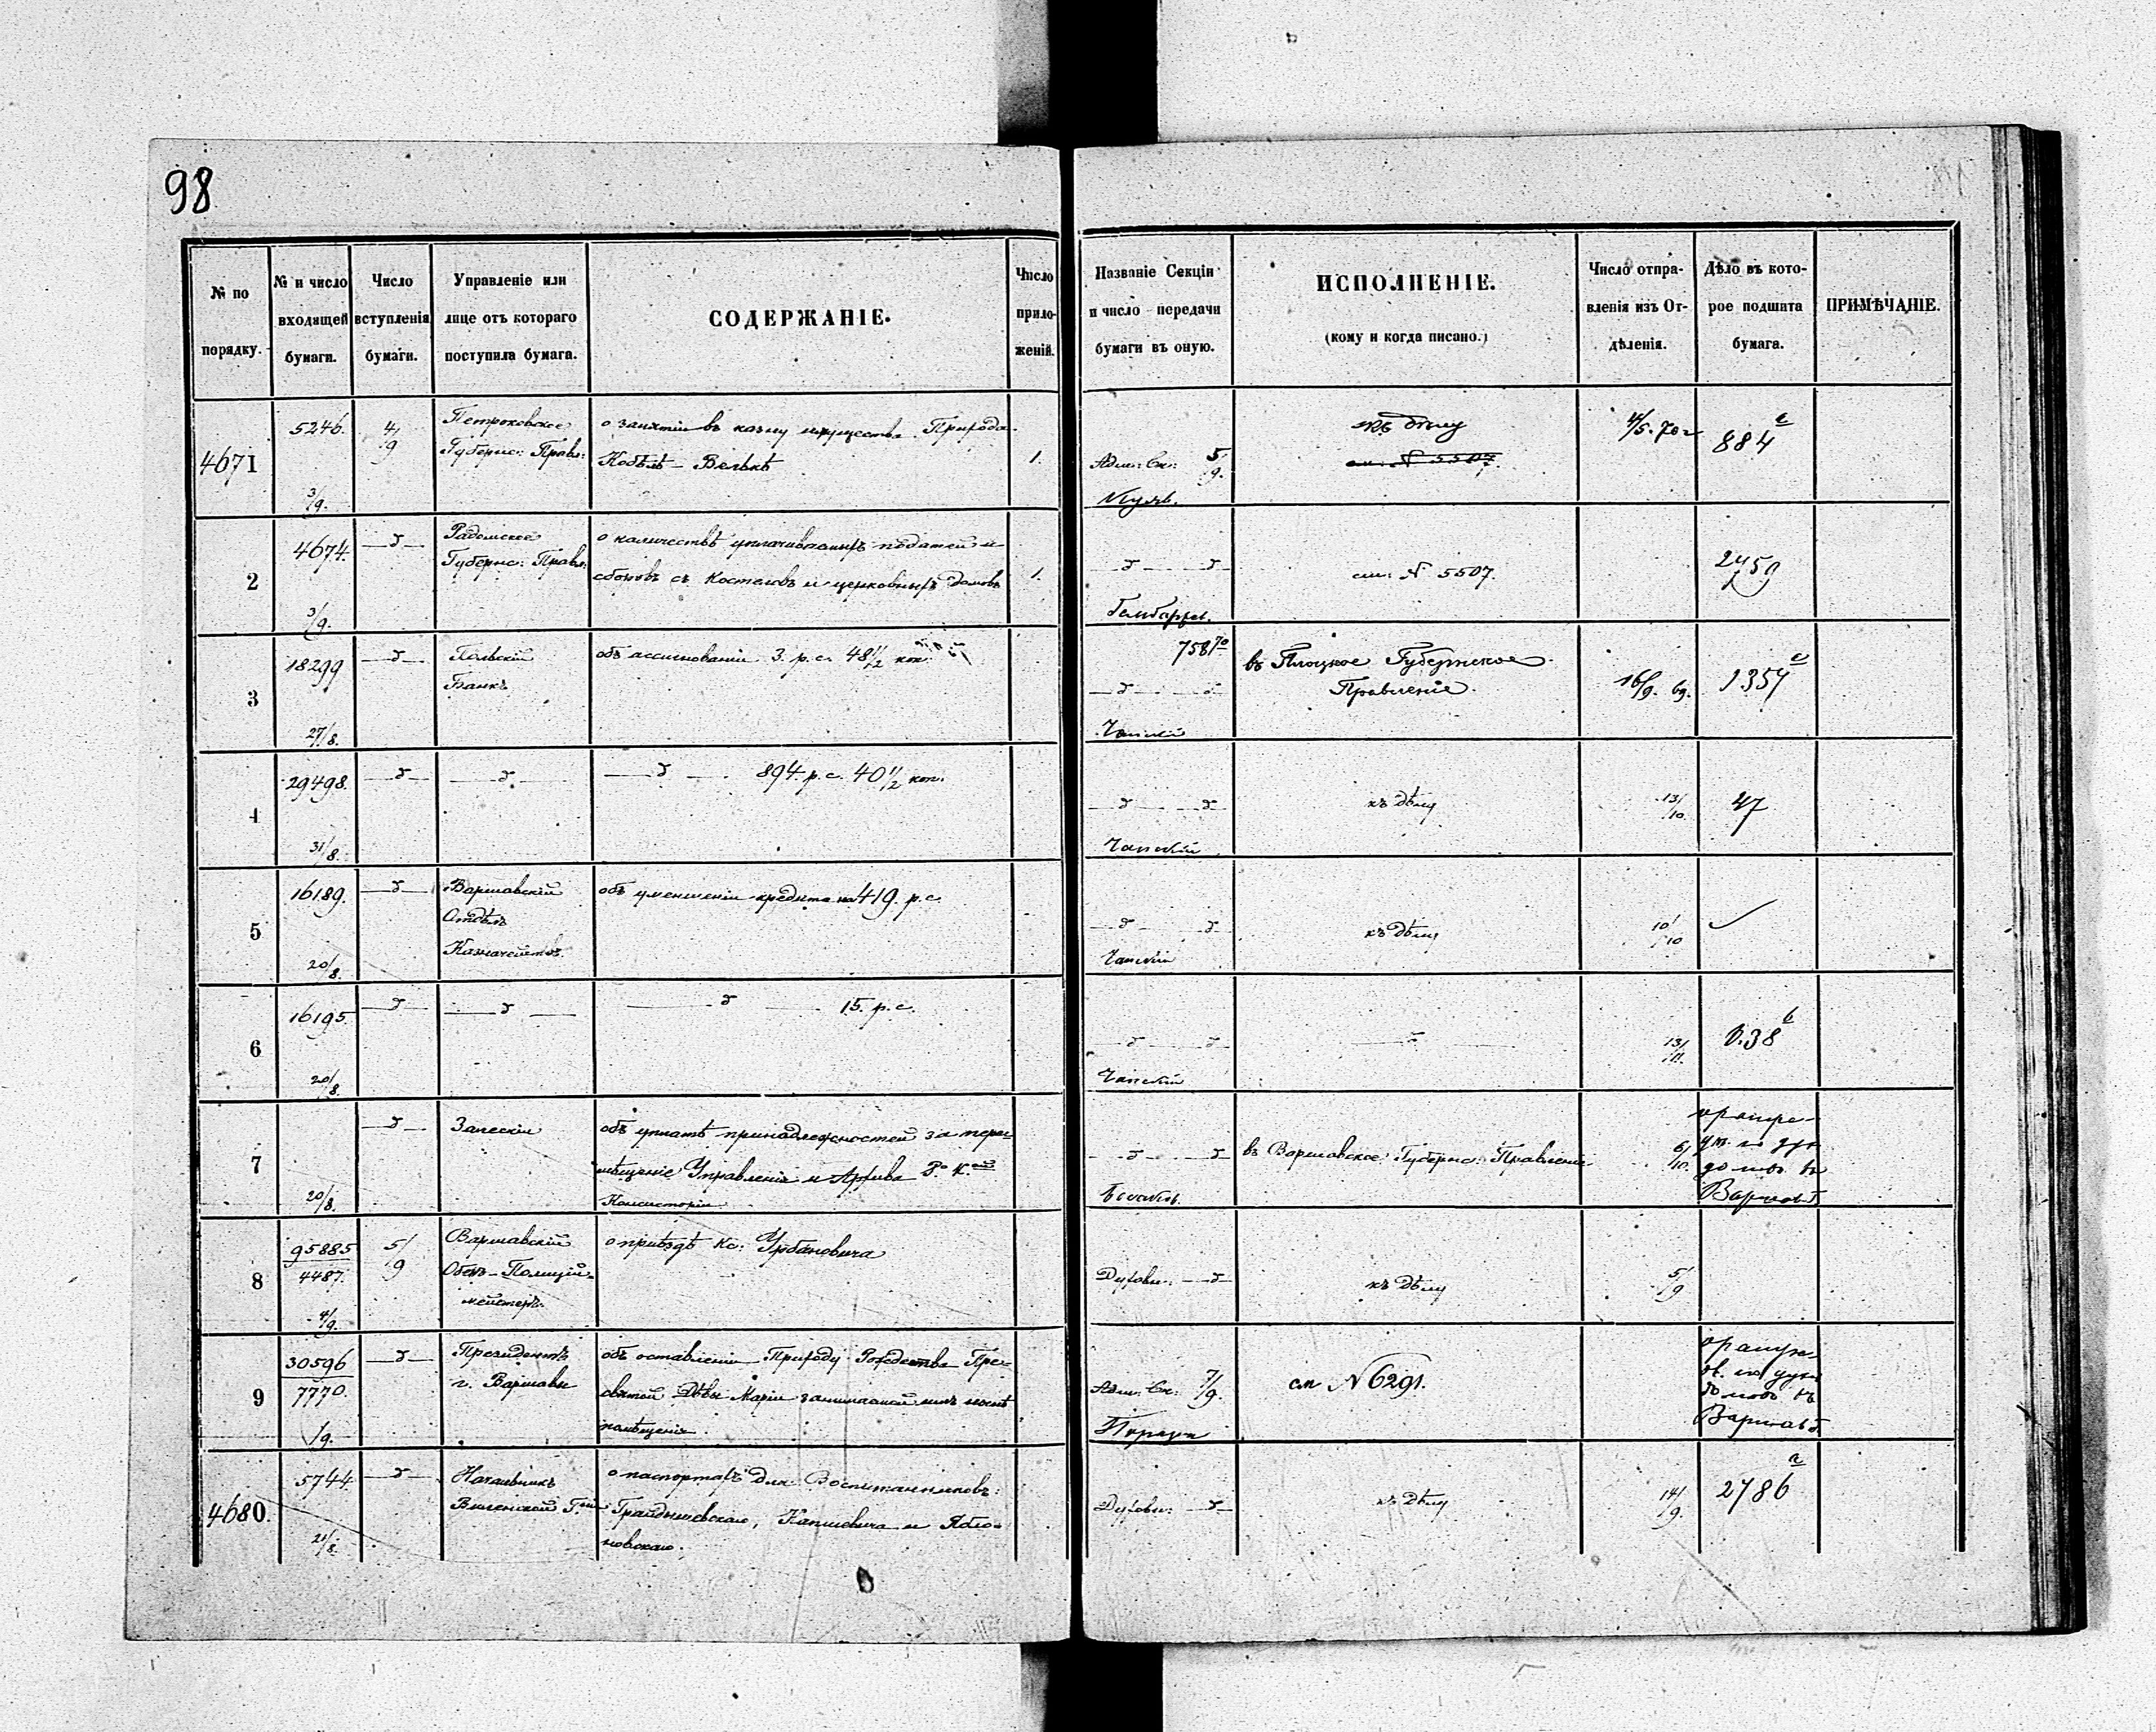 98
№ по порядку.
№ и число входящей бумаги.
Число вступленія бумаги.
Управленіе или лице отъ котораго поступила бумага.
СОДЕРЖАНІЕ.
Число приложеній.
Названіе Секціи и число передачи бумаги въ оную.
ИСПОЛНЕНІЕ.
(кому и когда писано.)
Число отправленія изъ Отдѣленія.
Дѣло въ которое подшита бумага.
ПРИМѢЧАНІЕ.
4671
5246.
3/9.
4/9
Петроковское
Губернс: Правл:
о занятіи въ казну имущества Прихода
Кобѣлѣ-Велькѣ
1.
Адм: Ск: 5/9.
къ дѣлу
см. N 5507.
4/5. 70 г
884
2
4674.
3/9.
Радомское
Губернс: Правл:
о количествѣ уплачиваемыхъ податей и
сборовъ съ костеловъ и церковныхъ домовъ
1.
см: N 5507.
2459
3
18299
27/8.
Польскій
Банкъ
объ ассигнованіи 3. р. с. 48 1/2 коп.
7587/70
Чапскій
въ Плоцкое Губернское
Правленіе.
16/9. 69.
1354
4
29498.
31/8.
894. р. с. 40 1/2 коп.
Чапскій
къ дѣлу
13/10
47
5
16189.
20/8.
Варшавскій
Отдѣлъ
Казначейства.
объ уменьшеніи кредита на 419. р. с.
Чапскій
къ дѣлу
10/10
6
16195.
20/8.
15. р. с.
Чапскій
13/11.
38
7
20/8.
Залескій
объ уплатѣ принадлежностей за пере-
мѣщеніе Управленія и Архива Р. К.
Консисторіи
въ Варшавское Губернс: Правленіе
6/10.
Варшавѣ
8
95885
4487.
4/9.
5/9
Варшавскій
Оберъ-Полицій-
мейстеръ.
о пріѣздѣ Кс: Урбановича
Духовн:
къ дѣлу
5/9
9
30596
7770.
/9.
Президентъ
г. Варшавы
объ оставленіи Приходу Рождества Пре-
святой Дѣвы Маріи занимаемой имъ нынѣ
помѣщенія.
Адм: Ск: 7/9.
см N 6291.
Варшавѣ
4680.
5744.
21/8.
Начальникъ
Виленской Г.
о паспортахъ для Воспитанниковъ:
новскаго.
Духовн:
къ дѣлу
14/9.
2786